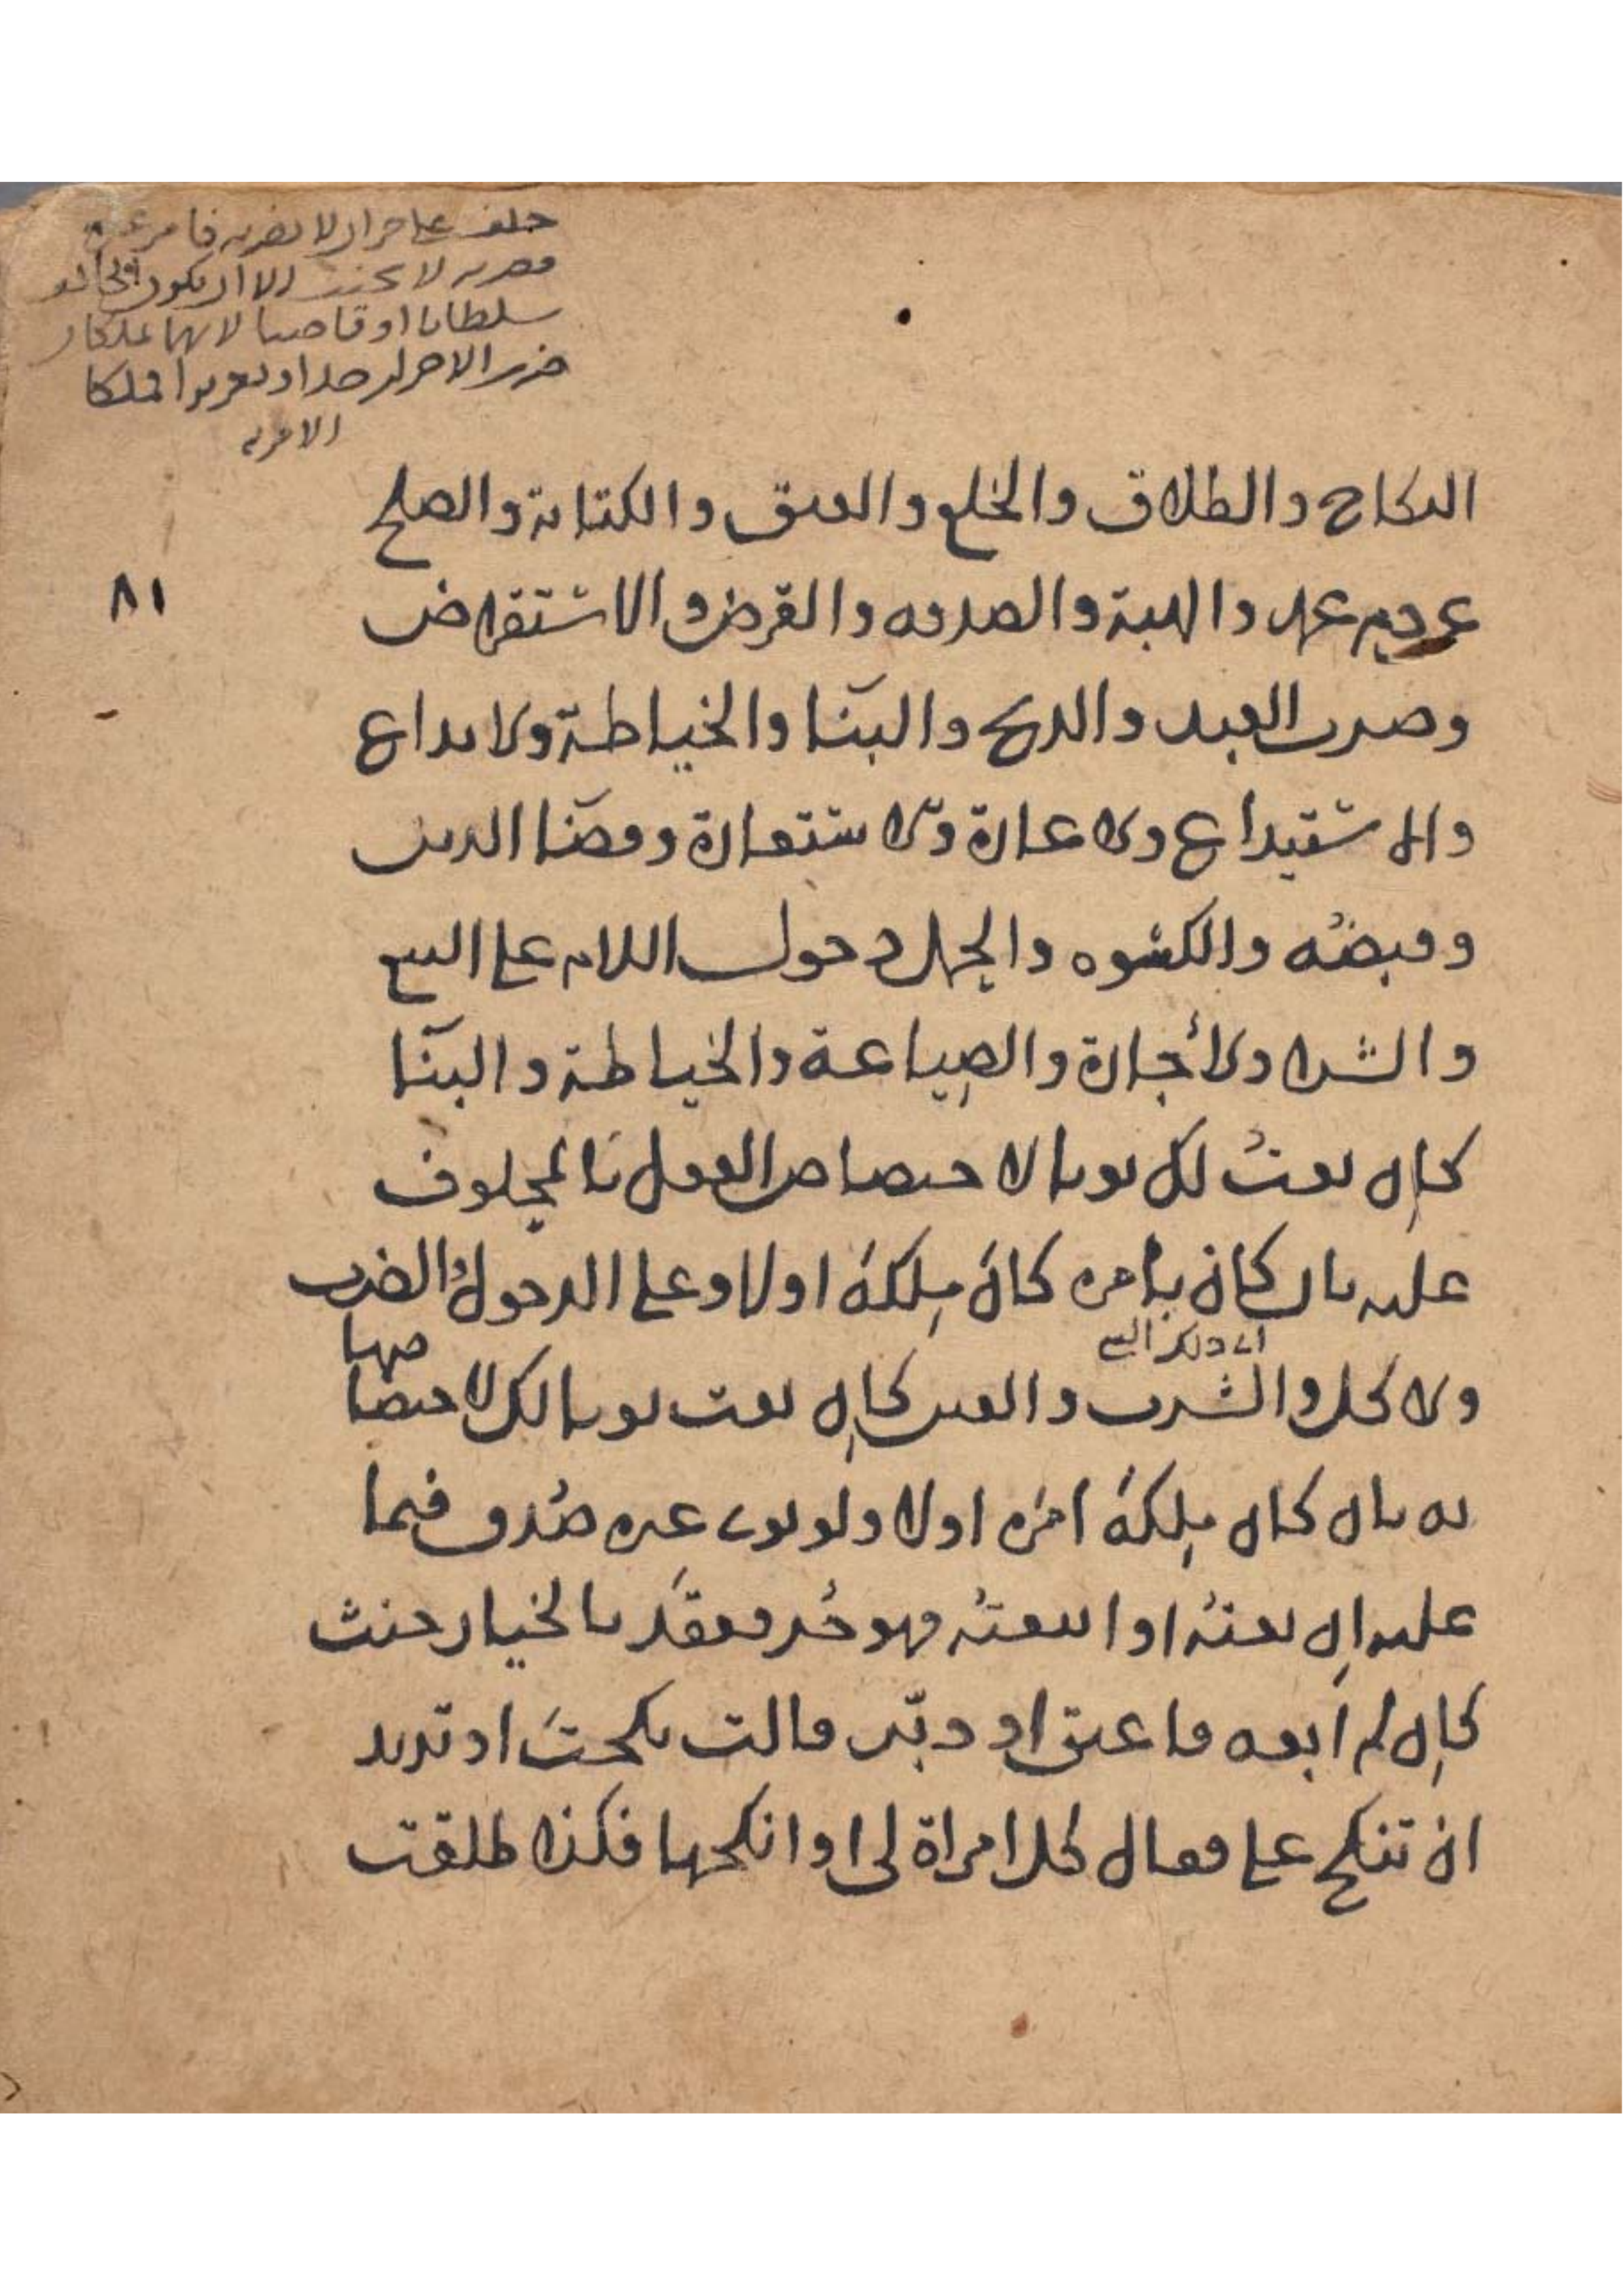 حلف على حر ان لا يضربه فامر غيره
فضربه لا يحنث الا ان يكون الحالف
سلطانا او قاضيا لانهما يملكان
ضرب الاحرار حدا وتعزيرا فملكا
الامر به
النكاح والطلاق والخلع والعتق والكتابة والصلح
٨١
عن دم عمد والهبة والصدقه والقرض والاستقراض
وضرب العبد والذبح والبنا والخياطة ولايداع
والاستيداع ولاعارة ولاستعارة وقضا الدين
وقبضه والكسوه والحمل دخول اللام على البيع
والشرا ولاجارة والصياغة والخياطة والبنا
كان بعت لك ثوبا لاختصاص الفعل بالمحلوف
عليه بان كان بامره كان ملكه اولا وعلى الدخول والضرب
اي دخول البيع
ولاكل والشرب والعين كان بعت ثوبا لك لاختصاصها
به بان كان ملكه امره اولا ولو نوى غيره صدق فيما
عليه ان بعته او ابتعته فهو حر فعقد بالخيار حنث
كان لم ابعه فاعتق او دبر قالت نكحت او تريد
ان تنكح علي فقال كل امراة لي او انكحها فكذا طلقت